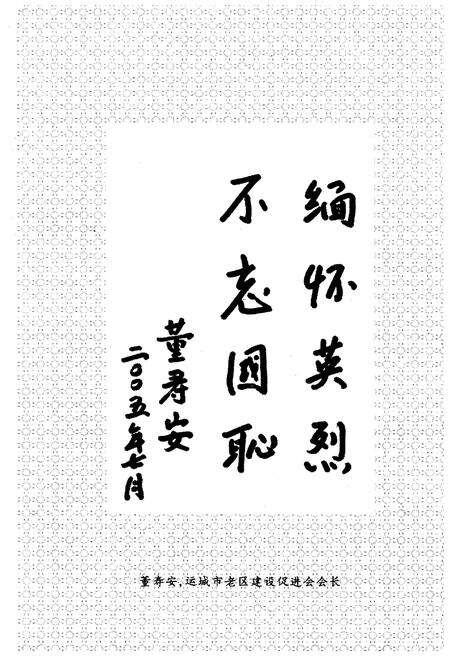 缅怀英烈
不忘國恥
董寿安
二〇〇五年七月
董寿安,运城市老区建设促进会会长